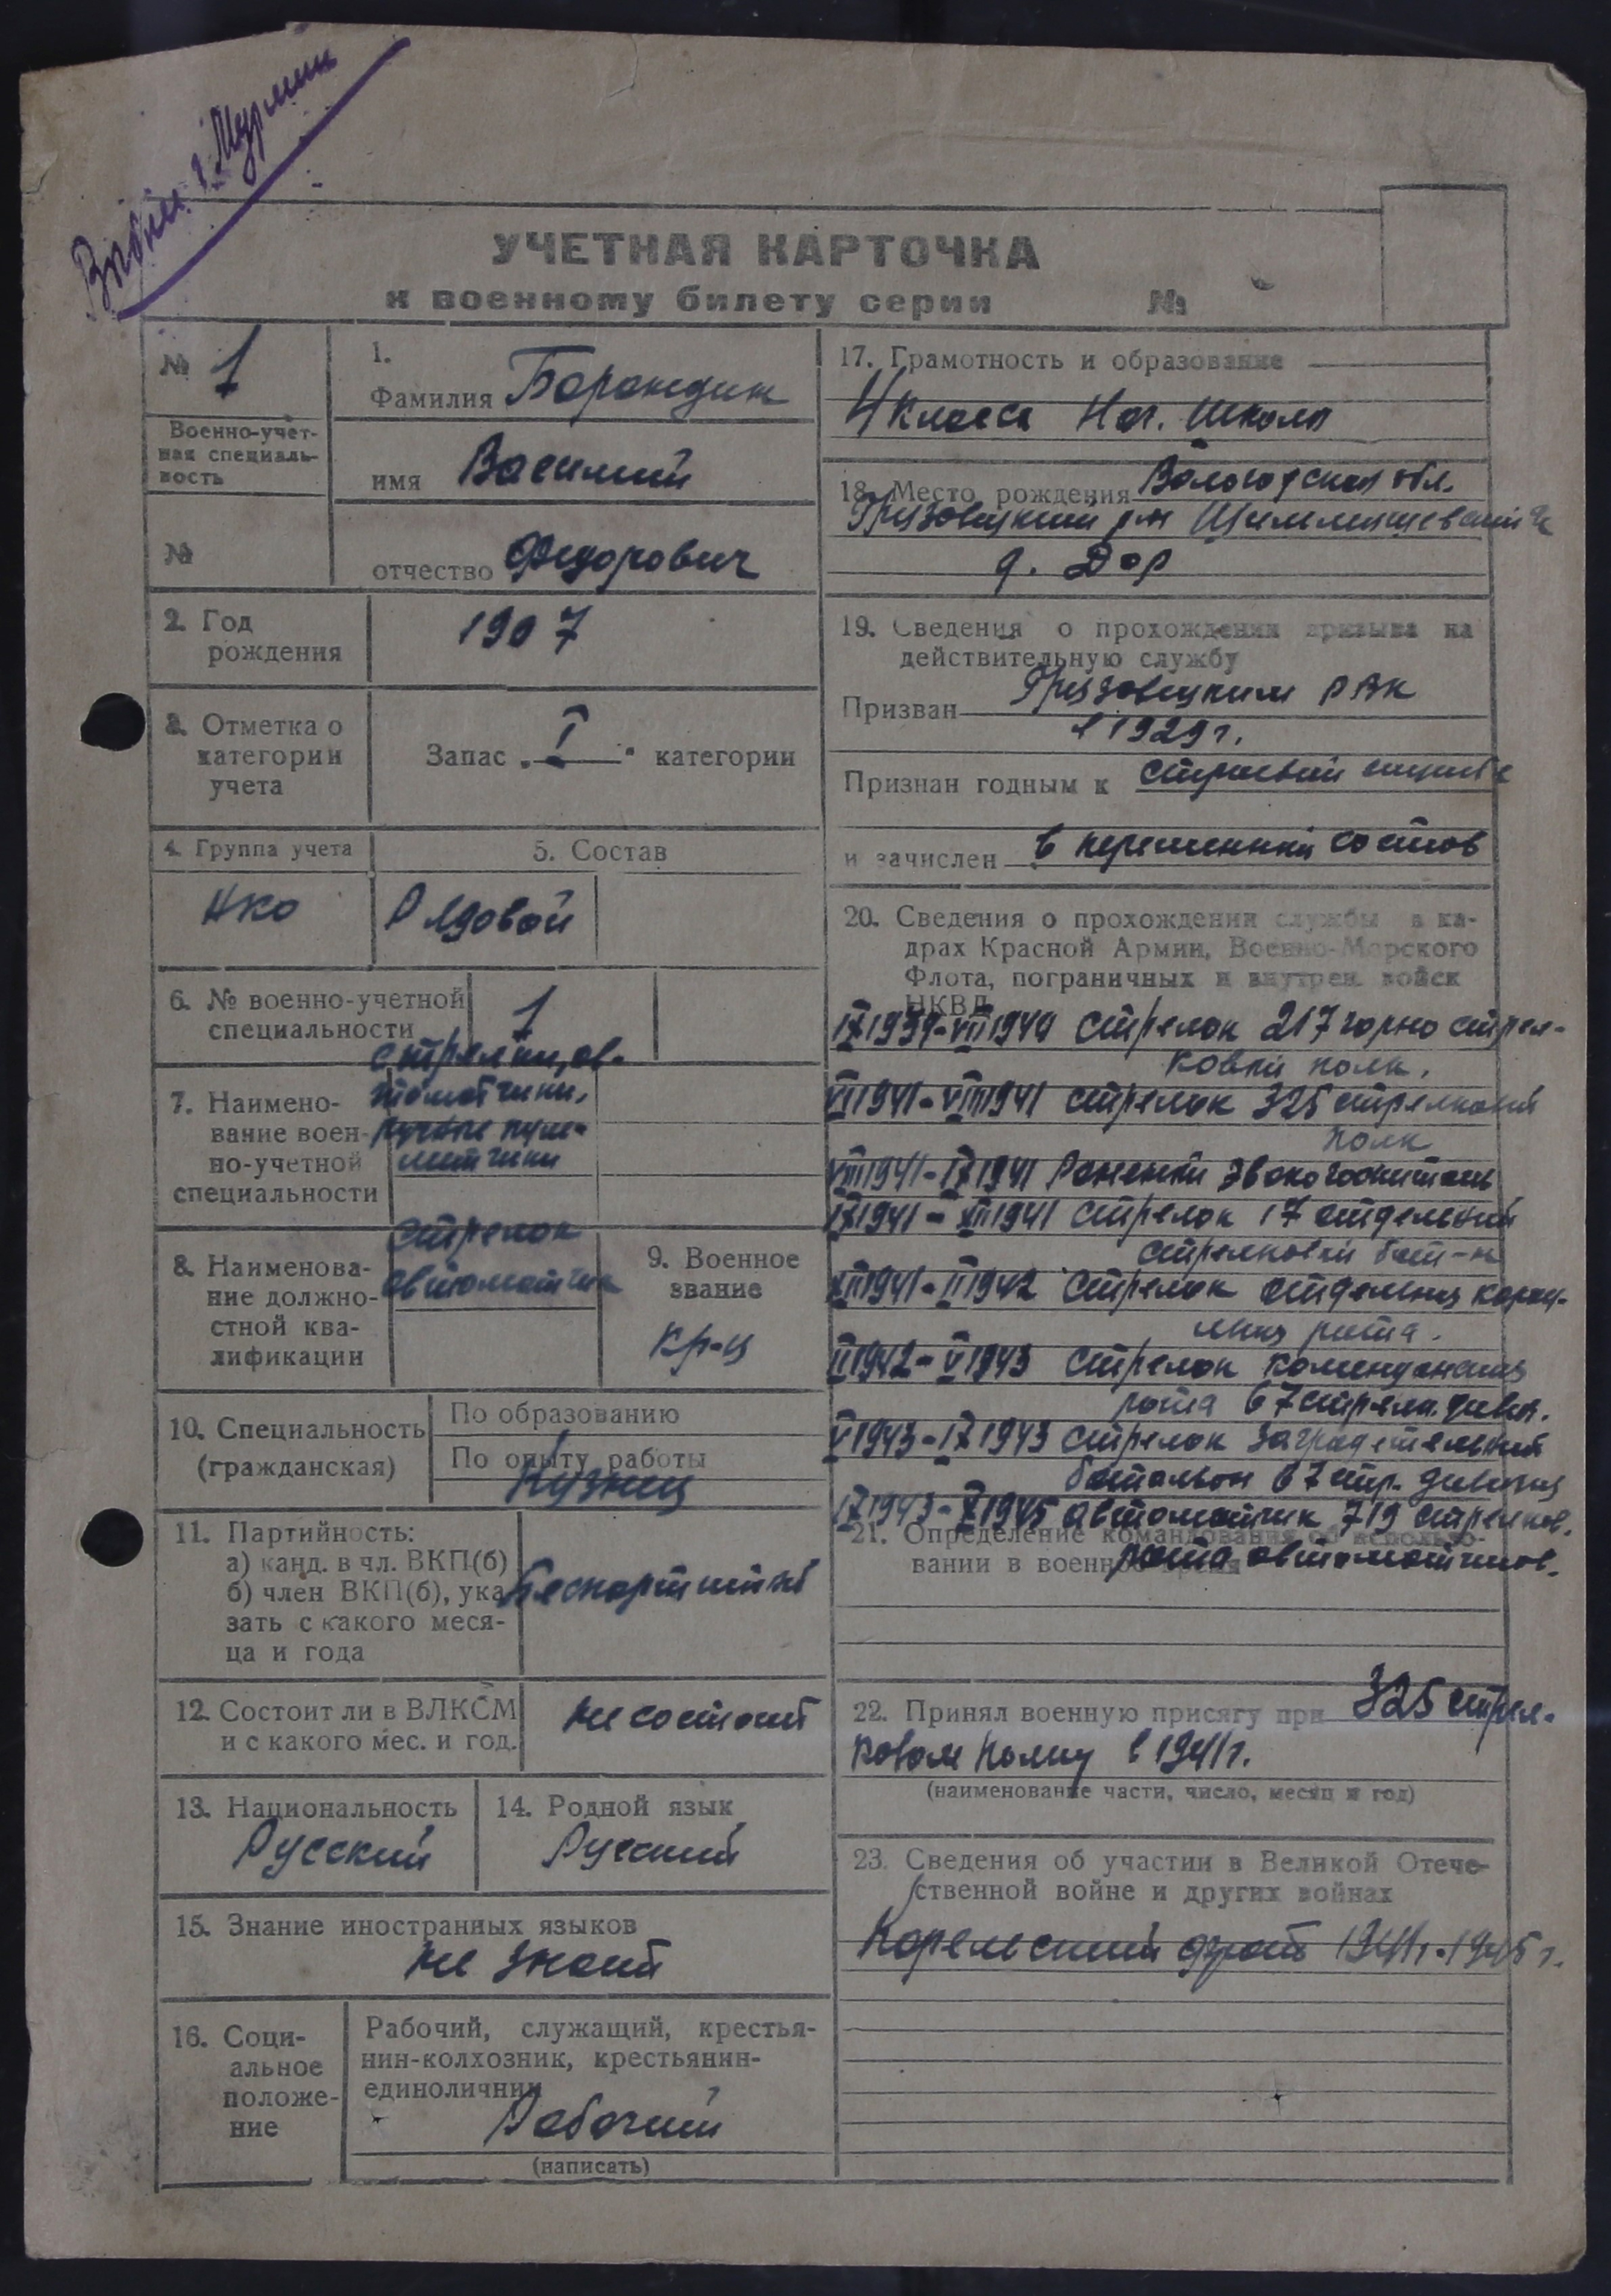 УЧЕТНАЯ КАРТОЧКА
к военному билету серии №
№ 1
Военно-учет-
ная специаль-
ность
№
1.
Фамилия Барандин
имя Василий
отчество Федорович
2. Год
рождения
1907
3. Отметка о
категории
учета
Запас „I“ категории
4. Группа учета
НКО
5. Состав
Рядовой
6. № военно-учетной
специальности
1
7. Наимено-
вание воен-
но-учетной
специальности
стрелки, ав-
томатчики,
ручные пуле-
метчики
8. Наименова-
ние должно-
стной ква-
лификации
стрелок
автоматчик
9. Военное
звание
кр-ц
10. Специальность
(гражданская)
По образованию
По опыту работы
Кузнец
11. Партийность:
а) канд. в чл. ВКП(б)
б) член ВКП(б), ука
зать с какого меся-
ца и года
Беспартийный
12. Состоит ли в ВЛКСМ
и с какого мес. и год.
не состоит
13. Национальность
Русский
14. Родной язык
Русский
15. Знание иностранных языков
не знает
16. Соци-
альное
положе-
ние
Рабочий, служащий, крестья-
нин-колхозник, крестьянин-
единоличник
Рабочий
(написать)
17. Грамотность и образование
4 класса Нач. школы
18. Место рождения Вологодская обл.
Грязовецкий р-н
д. Дор
19. Сведения о прохождении призыва на
действительную службу
Призван Грязовецким РВК
в 1929 г.
Признан годным к строевой службе
и зачислен в переменный состав
20. Сведения о прохождении службы в ка-
драх Красной Армии, Военно-Морского
Флота, пограничных и внутрен. войск
НКВД
IX 1939-VII 1940 стрелок 217 горно стрел-
ковый полк.
VII 1941-VIII 1941 стрелок 325 стрелковый
полк
VIII 1941-IX 1941 Раненый эвакогоспиталь
IX 1941-XII 1941 стрелок 17 отдельный
стрелковый бат-н
XII 1941-II 1942 стрелок отдельная карау-
льная рота.
II 1942-V 1943 стрелок комендантская
рота 67 стрелк. дивиз.
V 1943-IX 1943 стрелок заградительный
батальон 67 стр. дивизия
IX 1943-X 1945 автоматчик 719 стрелков.
рота автоматчиков.
21. Определение командования об использо-
вании в военное время
22. Принял военную присягу при 325 стрел-
ковом полку в 1941 г.
(наименование части, число, месяц и год)
23. Сведения об участии в Великой Отече-
ственной войне и других войнах
Карельский фронт 1941 г.-1945 г.